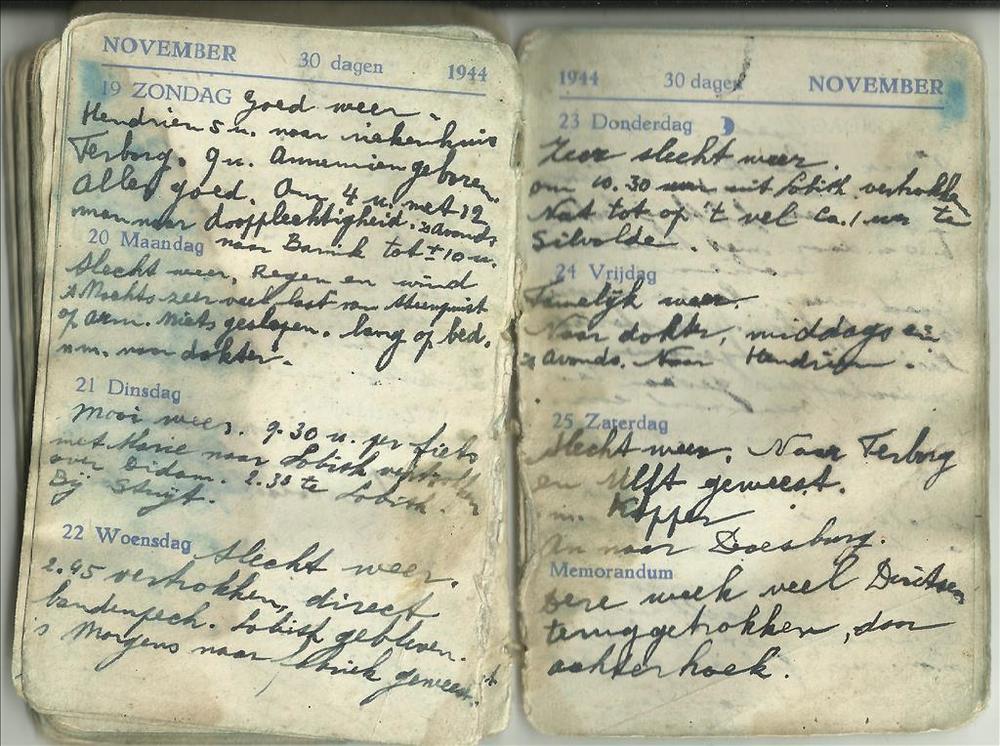 NOVEMBER 30 dagen 1944
19 ZONDAG Goed weer.
Hendrien 5 u. naar ziekenhuis
Terborg. 9 u. Annemien geboren.
Alles goed. Om 4 u. met 12
man naar doopplechtigheid. 's avonds
naar Barink tot ± 10 u.
20 Maandag
Slecht weer, Regen en wind
's Nachts zeer veel last van steenpuist
op arm. Niets geslapen. lang op bed.
n.m. naar dokter.
21 Dinsdag
Mooi weer. 9.30 u. per fiets
met Marie naar Lobith vertrokken
over Didam. 2.30 te Lobith.
Bij Struijt.
22 Woensdag Slecht weer.
2.45 vertrokken, direct
bandenpech. Lobith gebleven.
's Morgens naar fabriek geweest.
1944 30 dagen NOVEMBER
23 Donderdag
Zeer slecht weer.
om 10.30 uur uit Lobith vertrokken
Nat tot op 't vel ca. 1 uur te
Silvolde.
24 Vrijdag
Tamelijk weer.
Naar dokter, middags en
's avonds. Naar Hendrien.
25 Zaterdag
Slecht weer. Naar Terborg
en Ulft geweest.
Kopper
naar Doesburg.
Memorandum
Deze week veel Duitsers
teruggetrokken, door
achterhoek.